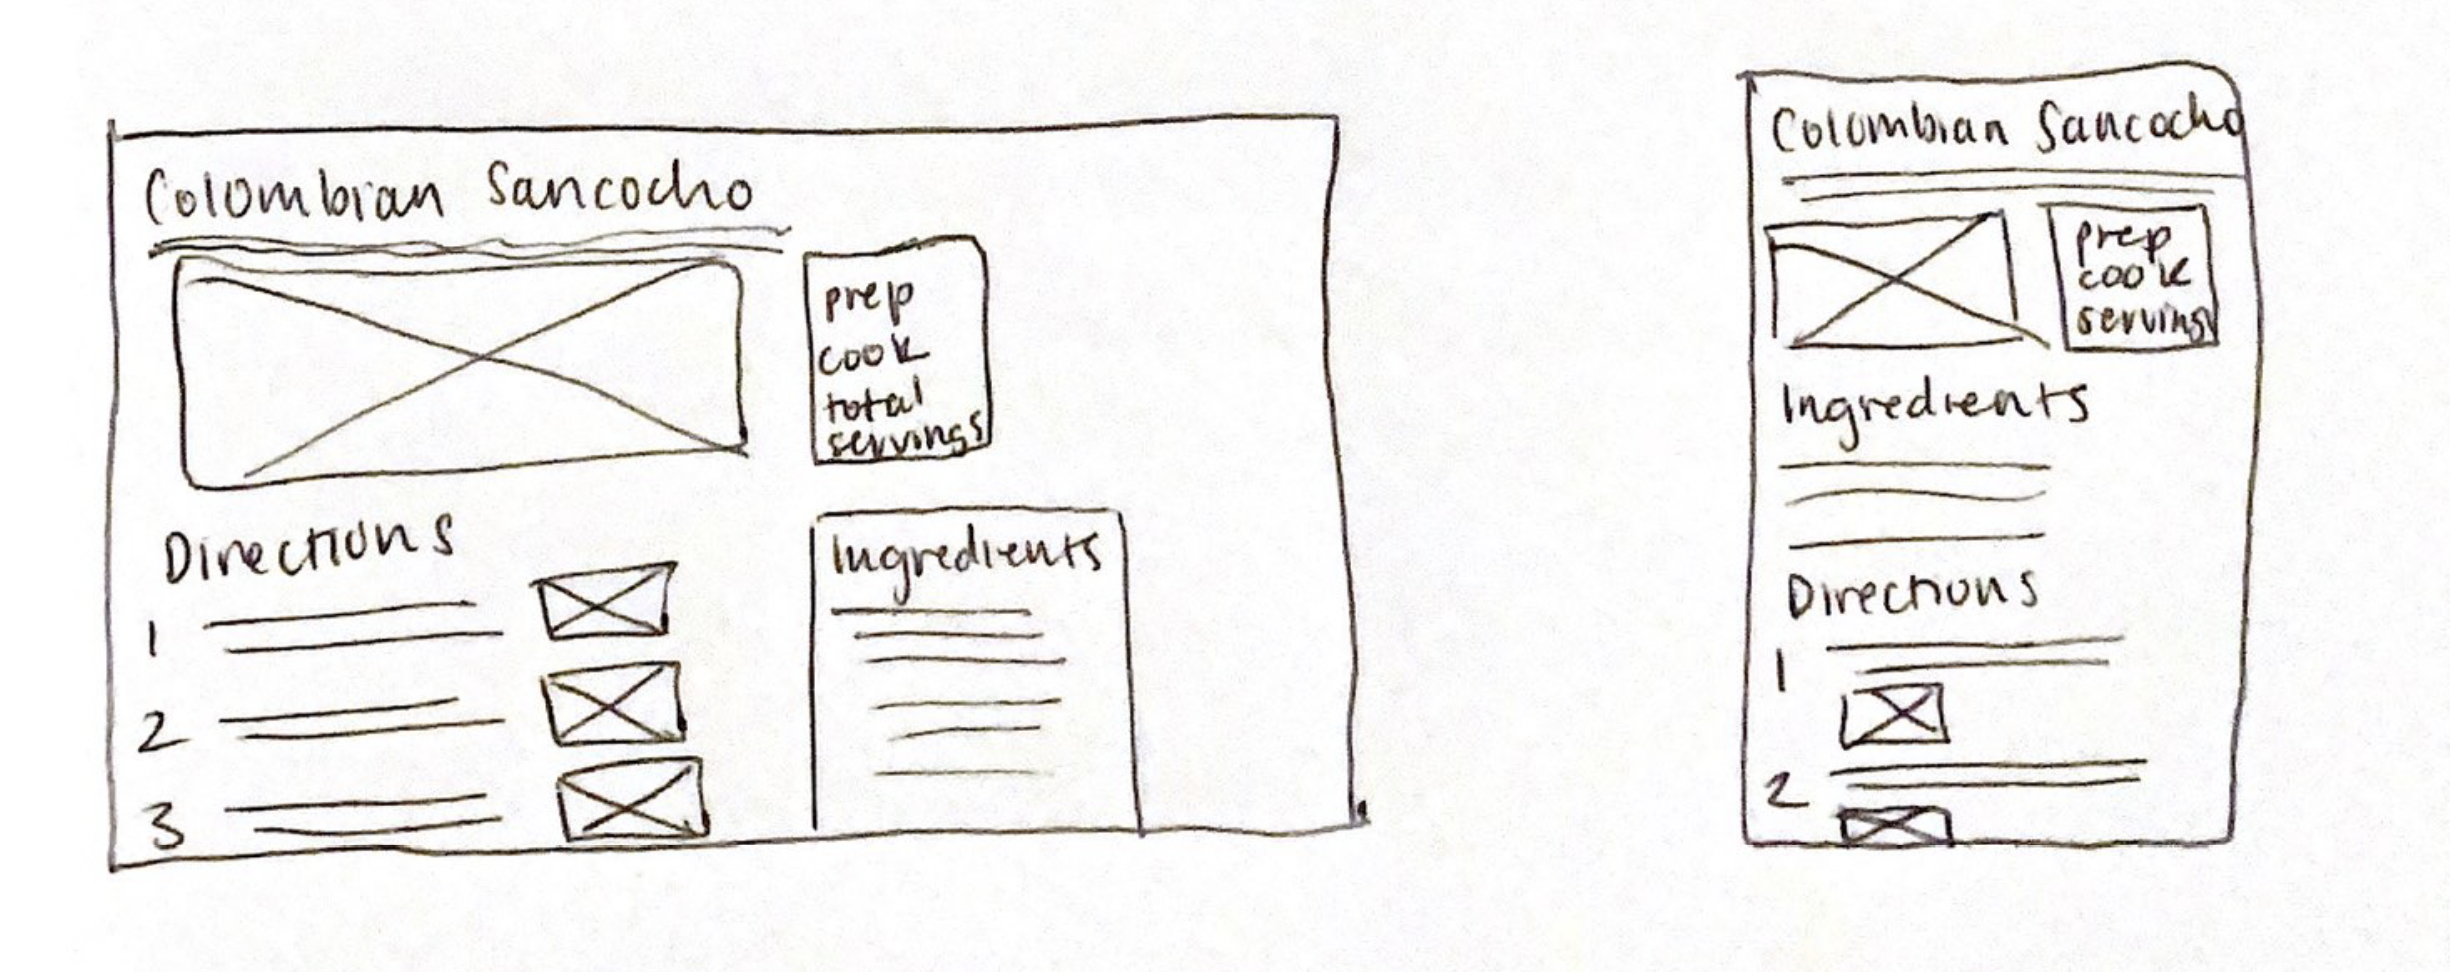 Colombian Sancocho
prep
cook
total
servings
Directions
1
2
3
Ingredients
Colombian Sancocho
prep
cook
servings
Ingredients
Directions
1
2